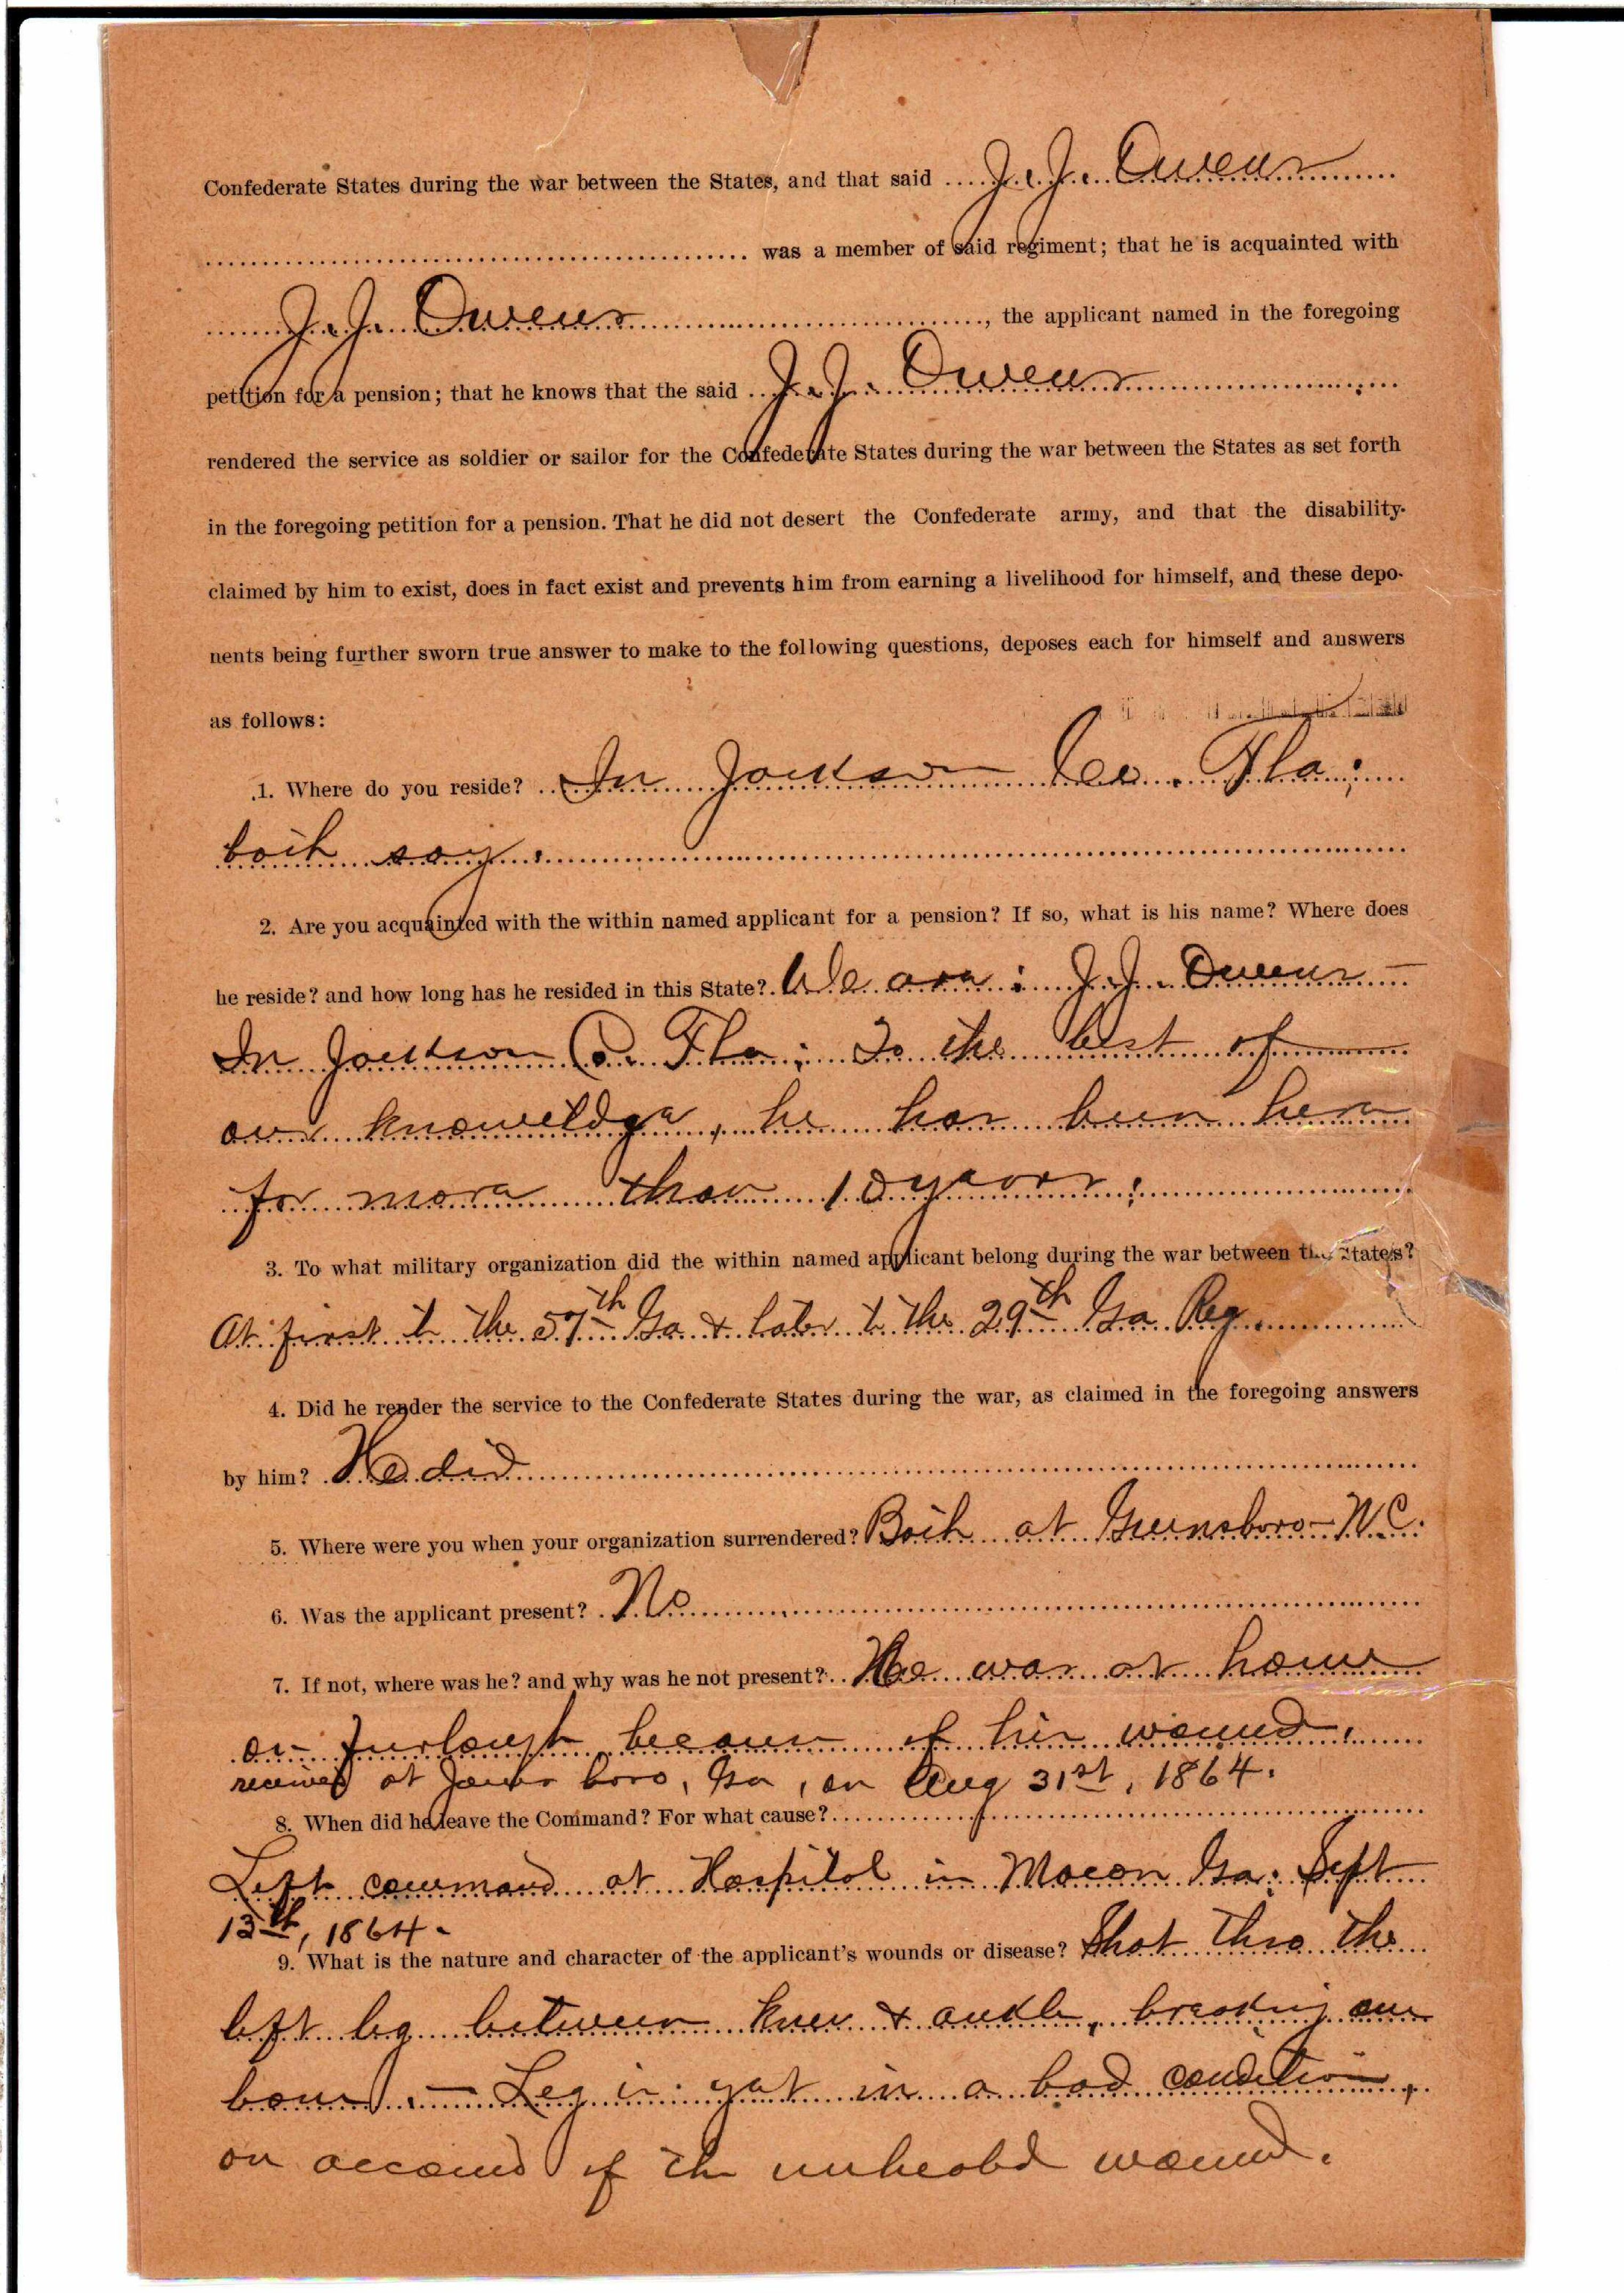 Confederate States during the war between the States, and that said J. J. Owens
was a member of said regiment; that he is acquainted with
J. J. Owens, the applicant named in the foregoing
petition for a pension; that he knows that the said J. J. Owens
rendered the service as soldier or sailor for the Confederate States during the war between the States as set forth
in the foregoing petition for a pension. That he did not desert the Confederate army, and that the disability
claimed by him to exist, does in fact exist and prevents him from earning a livelihood for himself, and these depo-
nents being further sworn true answer to make to the following questions, deposes each for himself and answers
as follows:
1. Where do you reside? In Jackson Co. Fla;
both say.
2. Are you acquainted with the within named applicant for a pension? If so, what is his name? Where does
he reside? and how long has he resided in this State? We are: J. J. Owens—
In Jackson Co. Fla; To the best of
our knoweldge, he has been here
for more than 10 years;
3. To what military organization did the within named applicant belong during the war between the States?
At first to the 57th Ga & later to the 29th Ga Reg.
4. Did he render the service to the Confederate States during the war, as claimed in the foregoing answers
by him? He did
5. Where were you when your organization surrendered? Both at Greensboro—N.C.
6. Was the applicant present? No
7. If not, where was he? and why was he not present? He was at home
on furlough because of his wound,
received at Jonesboro, Ga, on Aug 31st, 1864.
8. When did he leave the Command? For what cause?
Left command at Hospital in Macon Ga; Sept
13th, 1864.
9. What is the nature and character of the applicant's wounds or disease? Shot thro the
left leg between knee & ankle, breaking one
bone.— Leg is yet in a bad condition,
on account of the unhealed wound.